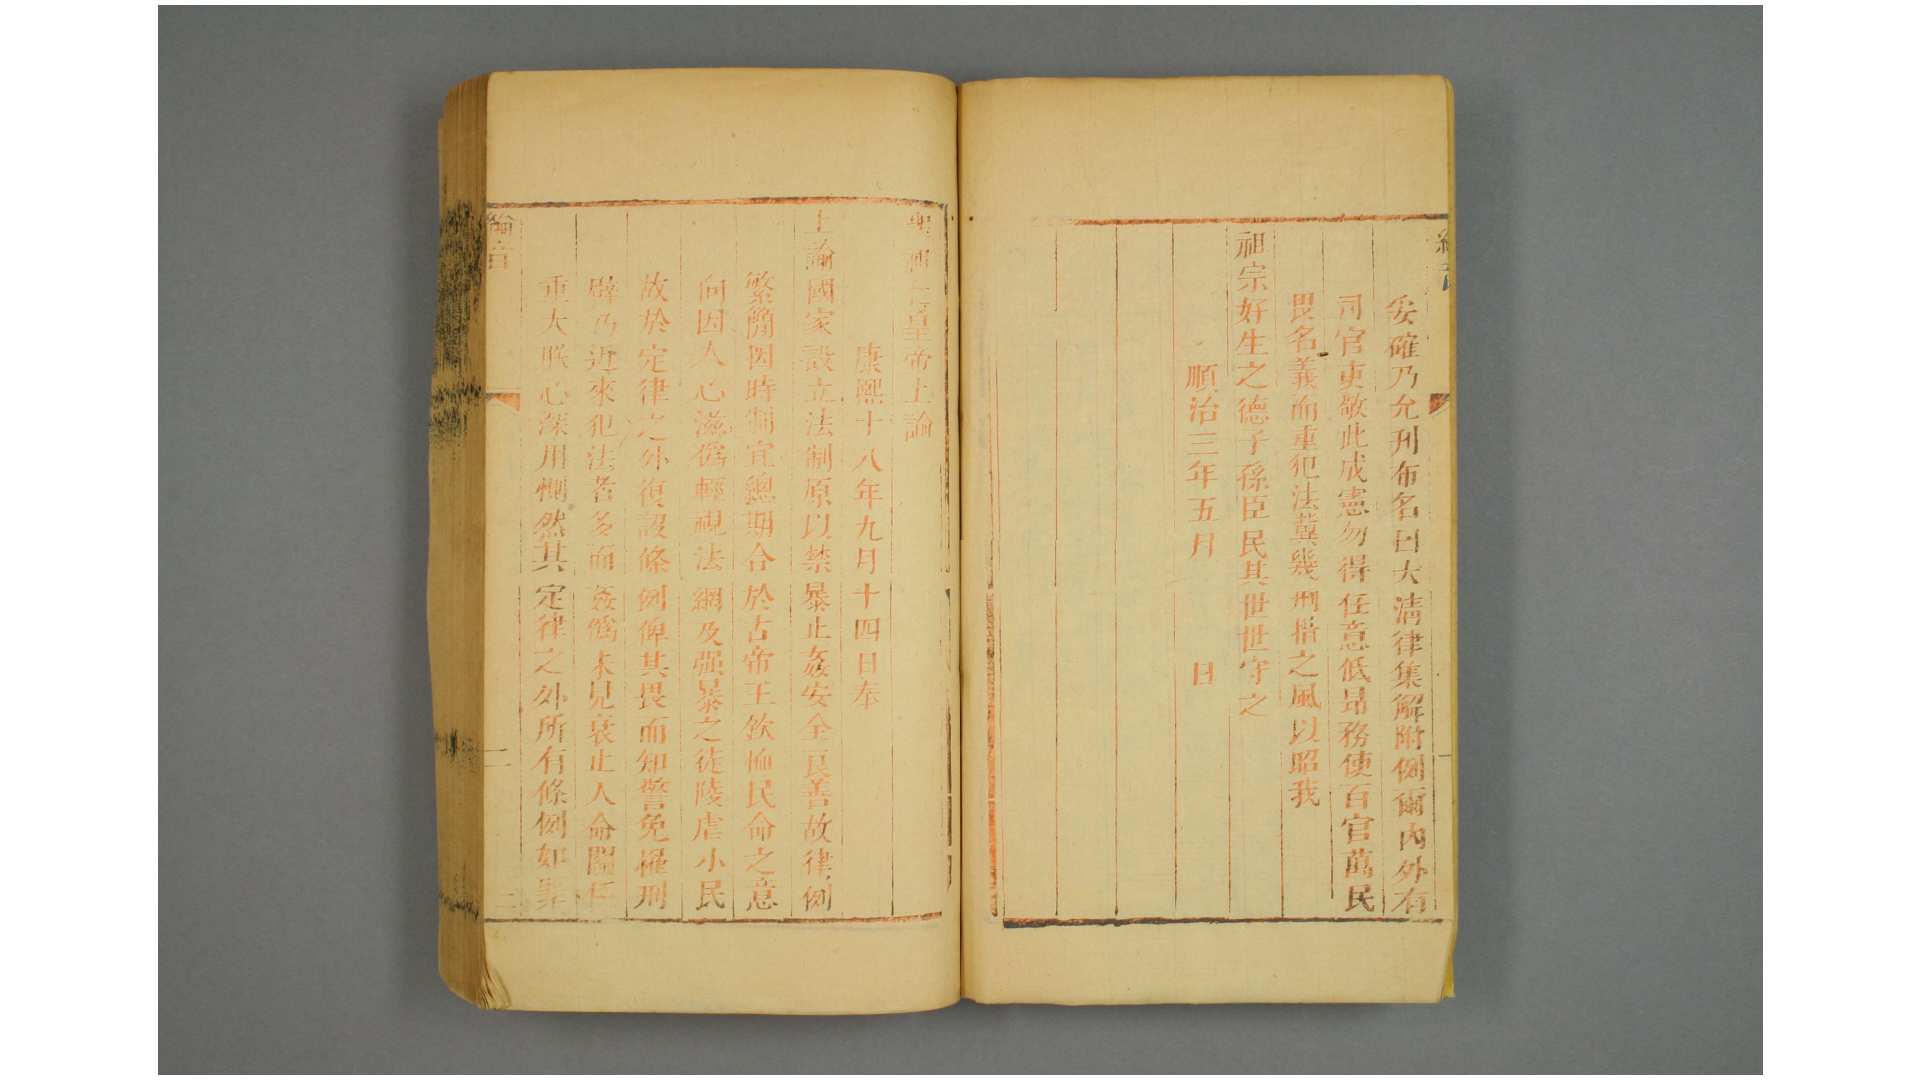 妥確乃允刊布名曰大淸律集解附例爾內外有
司官吏敬此成憲勿得任意低昻務使百官萬民
畏名義而重犯法冀幾刑措之風以昭我
祖宗好生之德子孫臣民其世世守之
順治三年五月 日
聖祖仁皇帝上諭
康熙十八年九月十四日奉
上諭國家設立法制原以禁暴止姦安全良善故律例
繁簡因時制宜總期合於古帝王欽恤民命之意
向因人心滋僞輕視法網及强暴之徒陵虐小民
故於定律之外復設條例俾其畏而知警免罹刑
辟乃近來犯法者多而姦僞未見衰止人命關係
重大朕心深用惻然其定律之外所有條例如罪
綸音
二